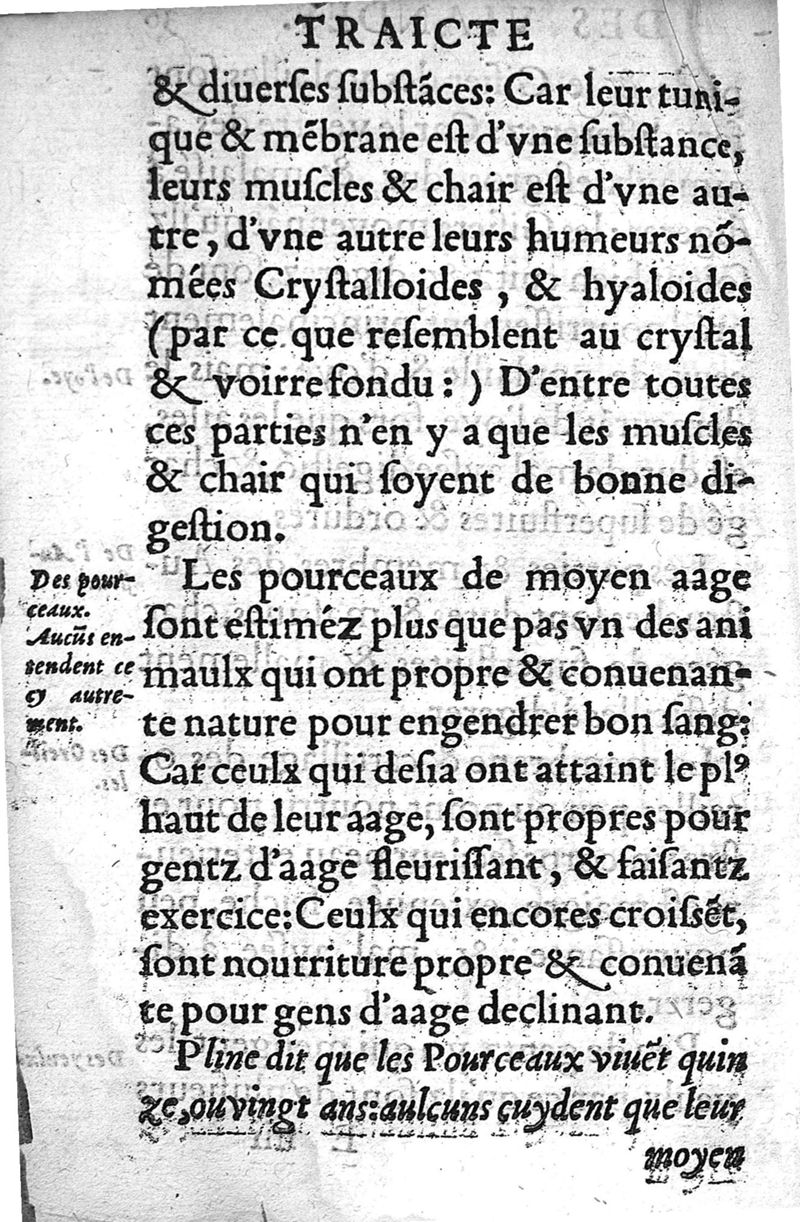 TRAICTE
& diuerſes ſubſtãces: Car leur tuni-
que & mẽbrane eſt d'vne ſubſtance,
leurs muſcles & chair eſt d'vne au-
tre, d'vne autre leurs humeurs nõ-
mées Cryſtalloides, & hyaloides
(par ce que reſemblent au cryſtal
& voirre fondu: ) D'entre toutes
ces parties n'en y a que les muſcles
& chair qui ſoyent de bonne di-
geſtion.
Des pour-
ceaux.
Aucũs en-
tendent ce
cy autre-
ment.
Les pourceaux de moyen aage
ſont eſtiméz plus que pas vn des ani
maulx qui ont propre & conuenan-
te nature pour engendrer bon ſang:
Car ceulx qui deſia ont attaint le plꝰ
haut de leur aage, ſont propres pour
gentz d'aage fleuriſſant, & faiſantz
exercice: Ceulx qui encores croiſſẽt,
ſont nourriture propre & conuenã
te pour gens d'aage declinant.
Pline dit que les Pourceaux viuẽt quin
ze, ou vingt ans: aulcuns cuydent que leur
moyen